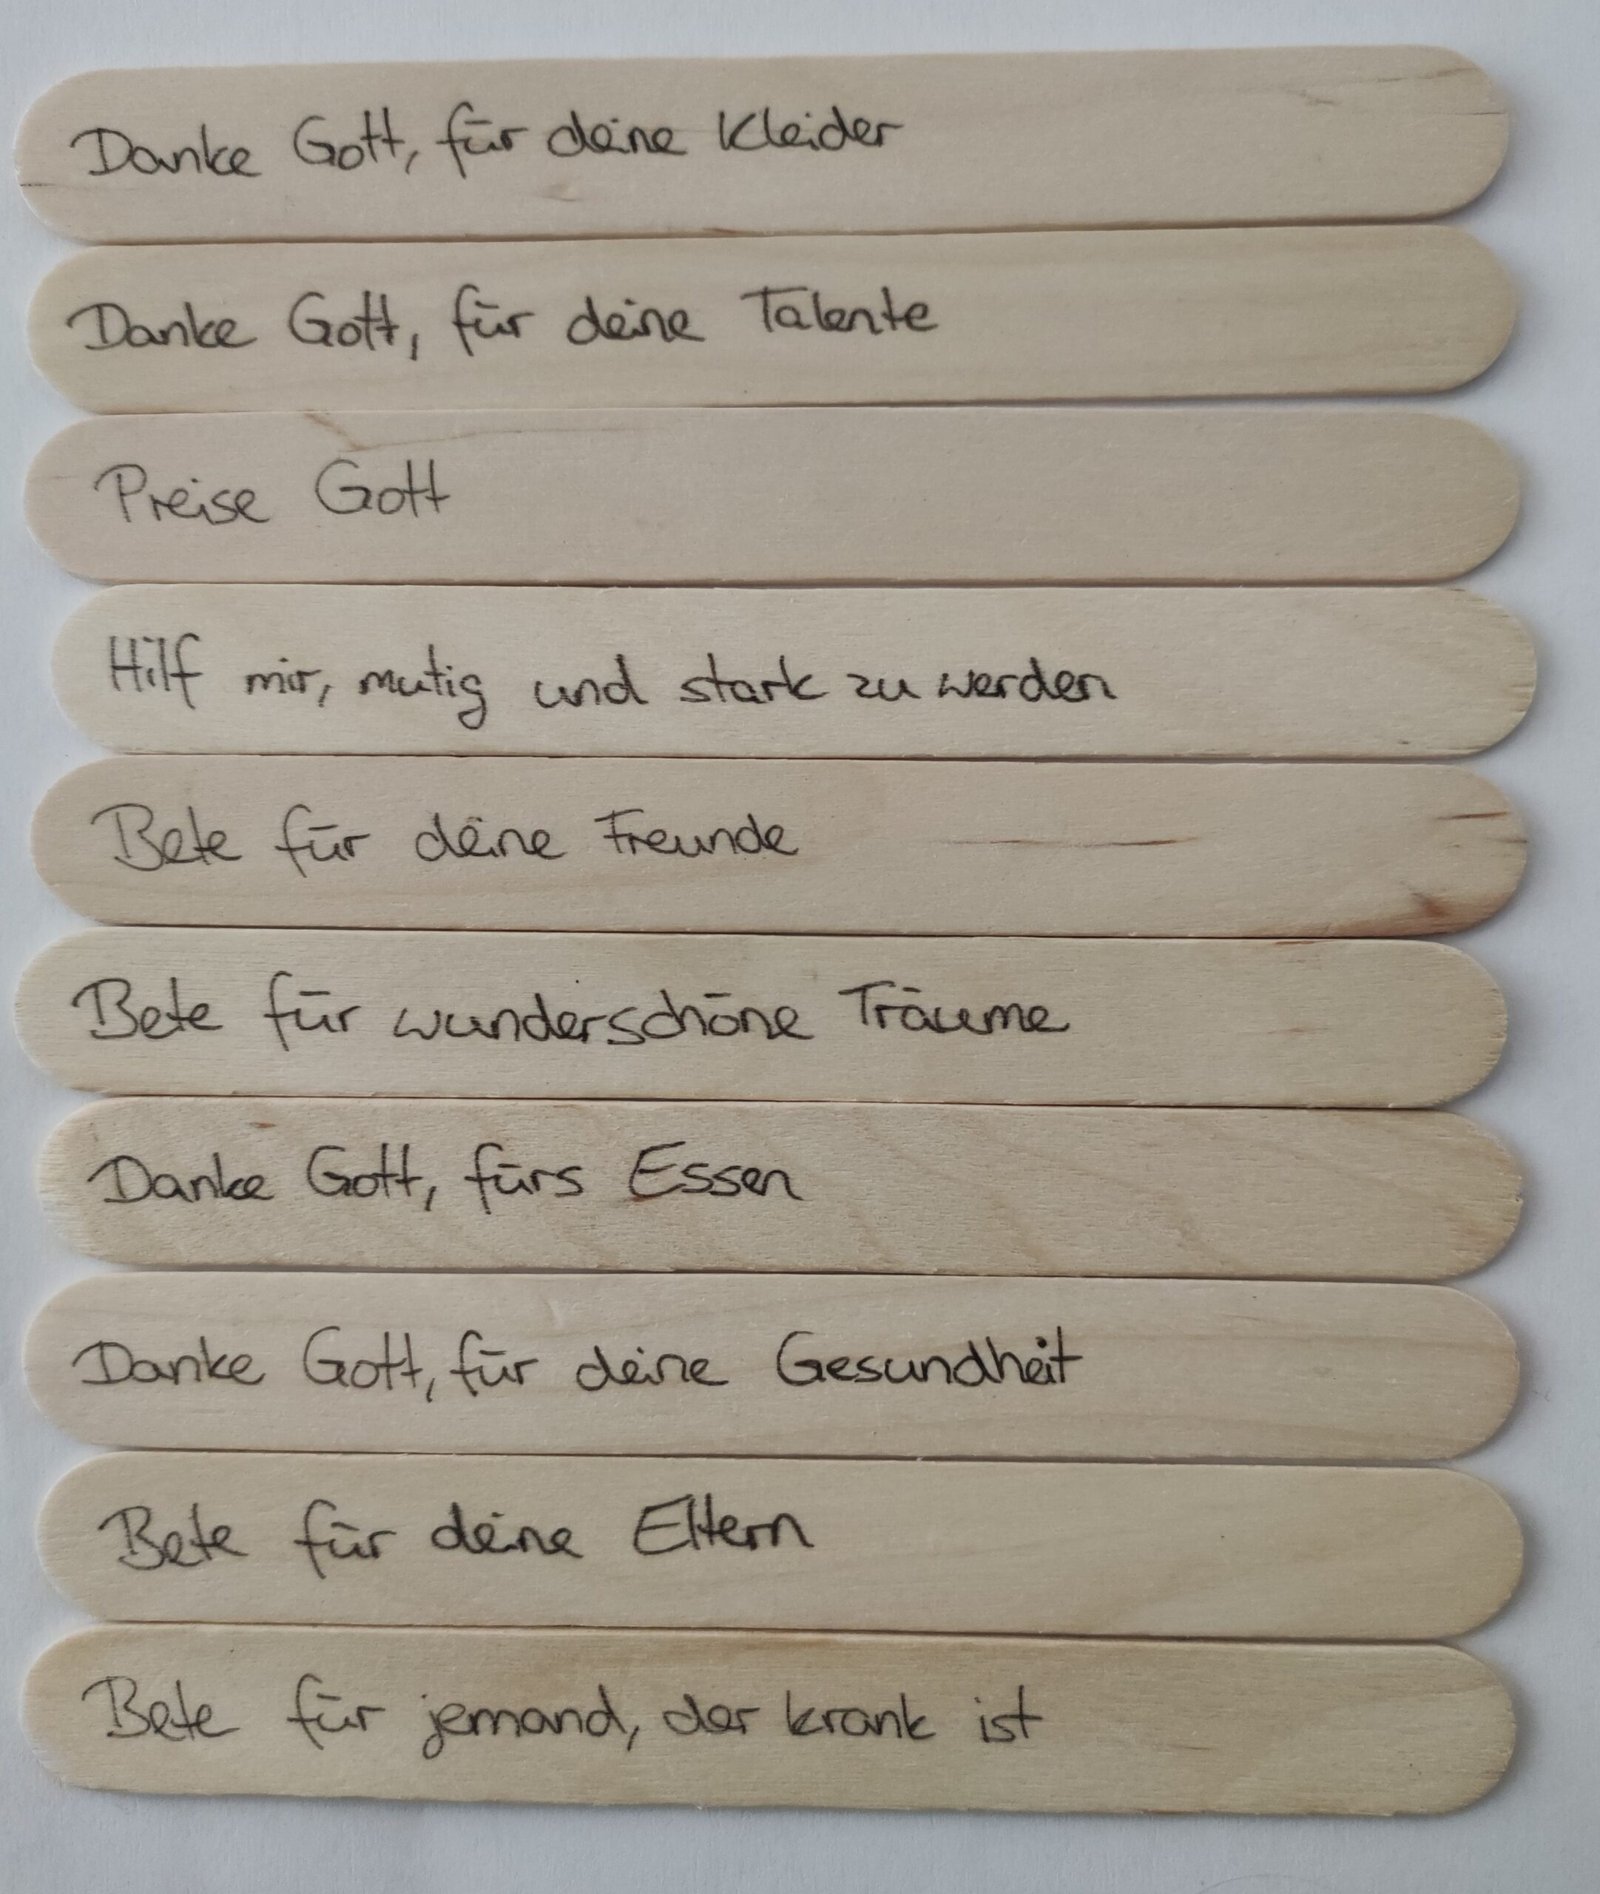 Danke Gott, für deine Kleider
Danke Gott, für deine Talente
Preise Gott
Hilf mir, mutig und stark zu werden
Bete für deine Freunde
Bete für wunderschöne Träume
Danke Gott, fürs Essen
Danke Gott, für deine Gesundheit
Bete für deine Eltern
Bete für jemand, der krank ist